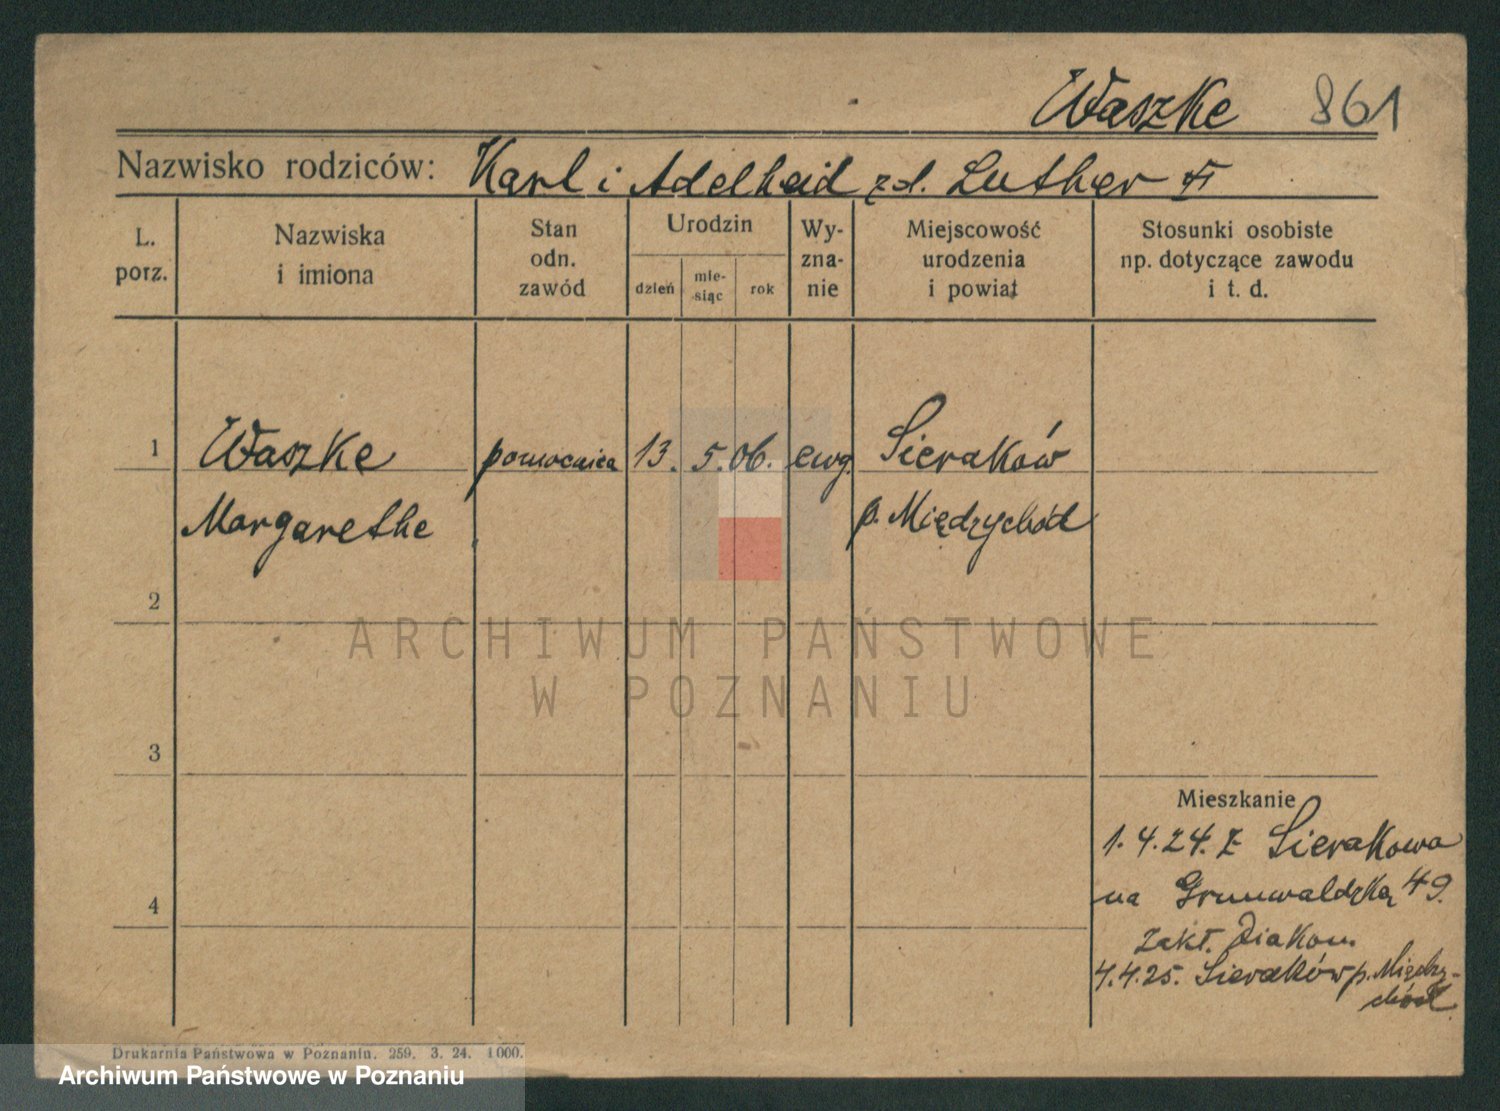 Waszke 861
Nazwisko rodziców: Karl i Adelheid zd. Luther
L. porz.
Nazwiska i imiona
Stan odn. zawód
Urodzin
dzień
mie-
siąc
rok
Wy-
zna-
nie
Miejscowość
urodzenia
i powiat
Stosunki osobiste
np. dotyczące zawodu
i t. d.
1 Waszke pomocnica 13. 5. 06. ewg. Sieraków
Margarethe p. Międzychód
2
ARCHIWUM PAŃSTWOWE
W POZNANIU
3
Mieszkanie
1.4.24. z Sierakowa
na Grunwaldzką 49.
4
Zakł. Diakon.
4.4.25. Sieraków p. Między-
chód
Drukarnia Państwowa w Poznaniu. 259. 3. 24. 1000.
Archiwum Państwowe w Poznaniu